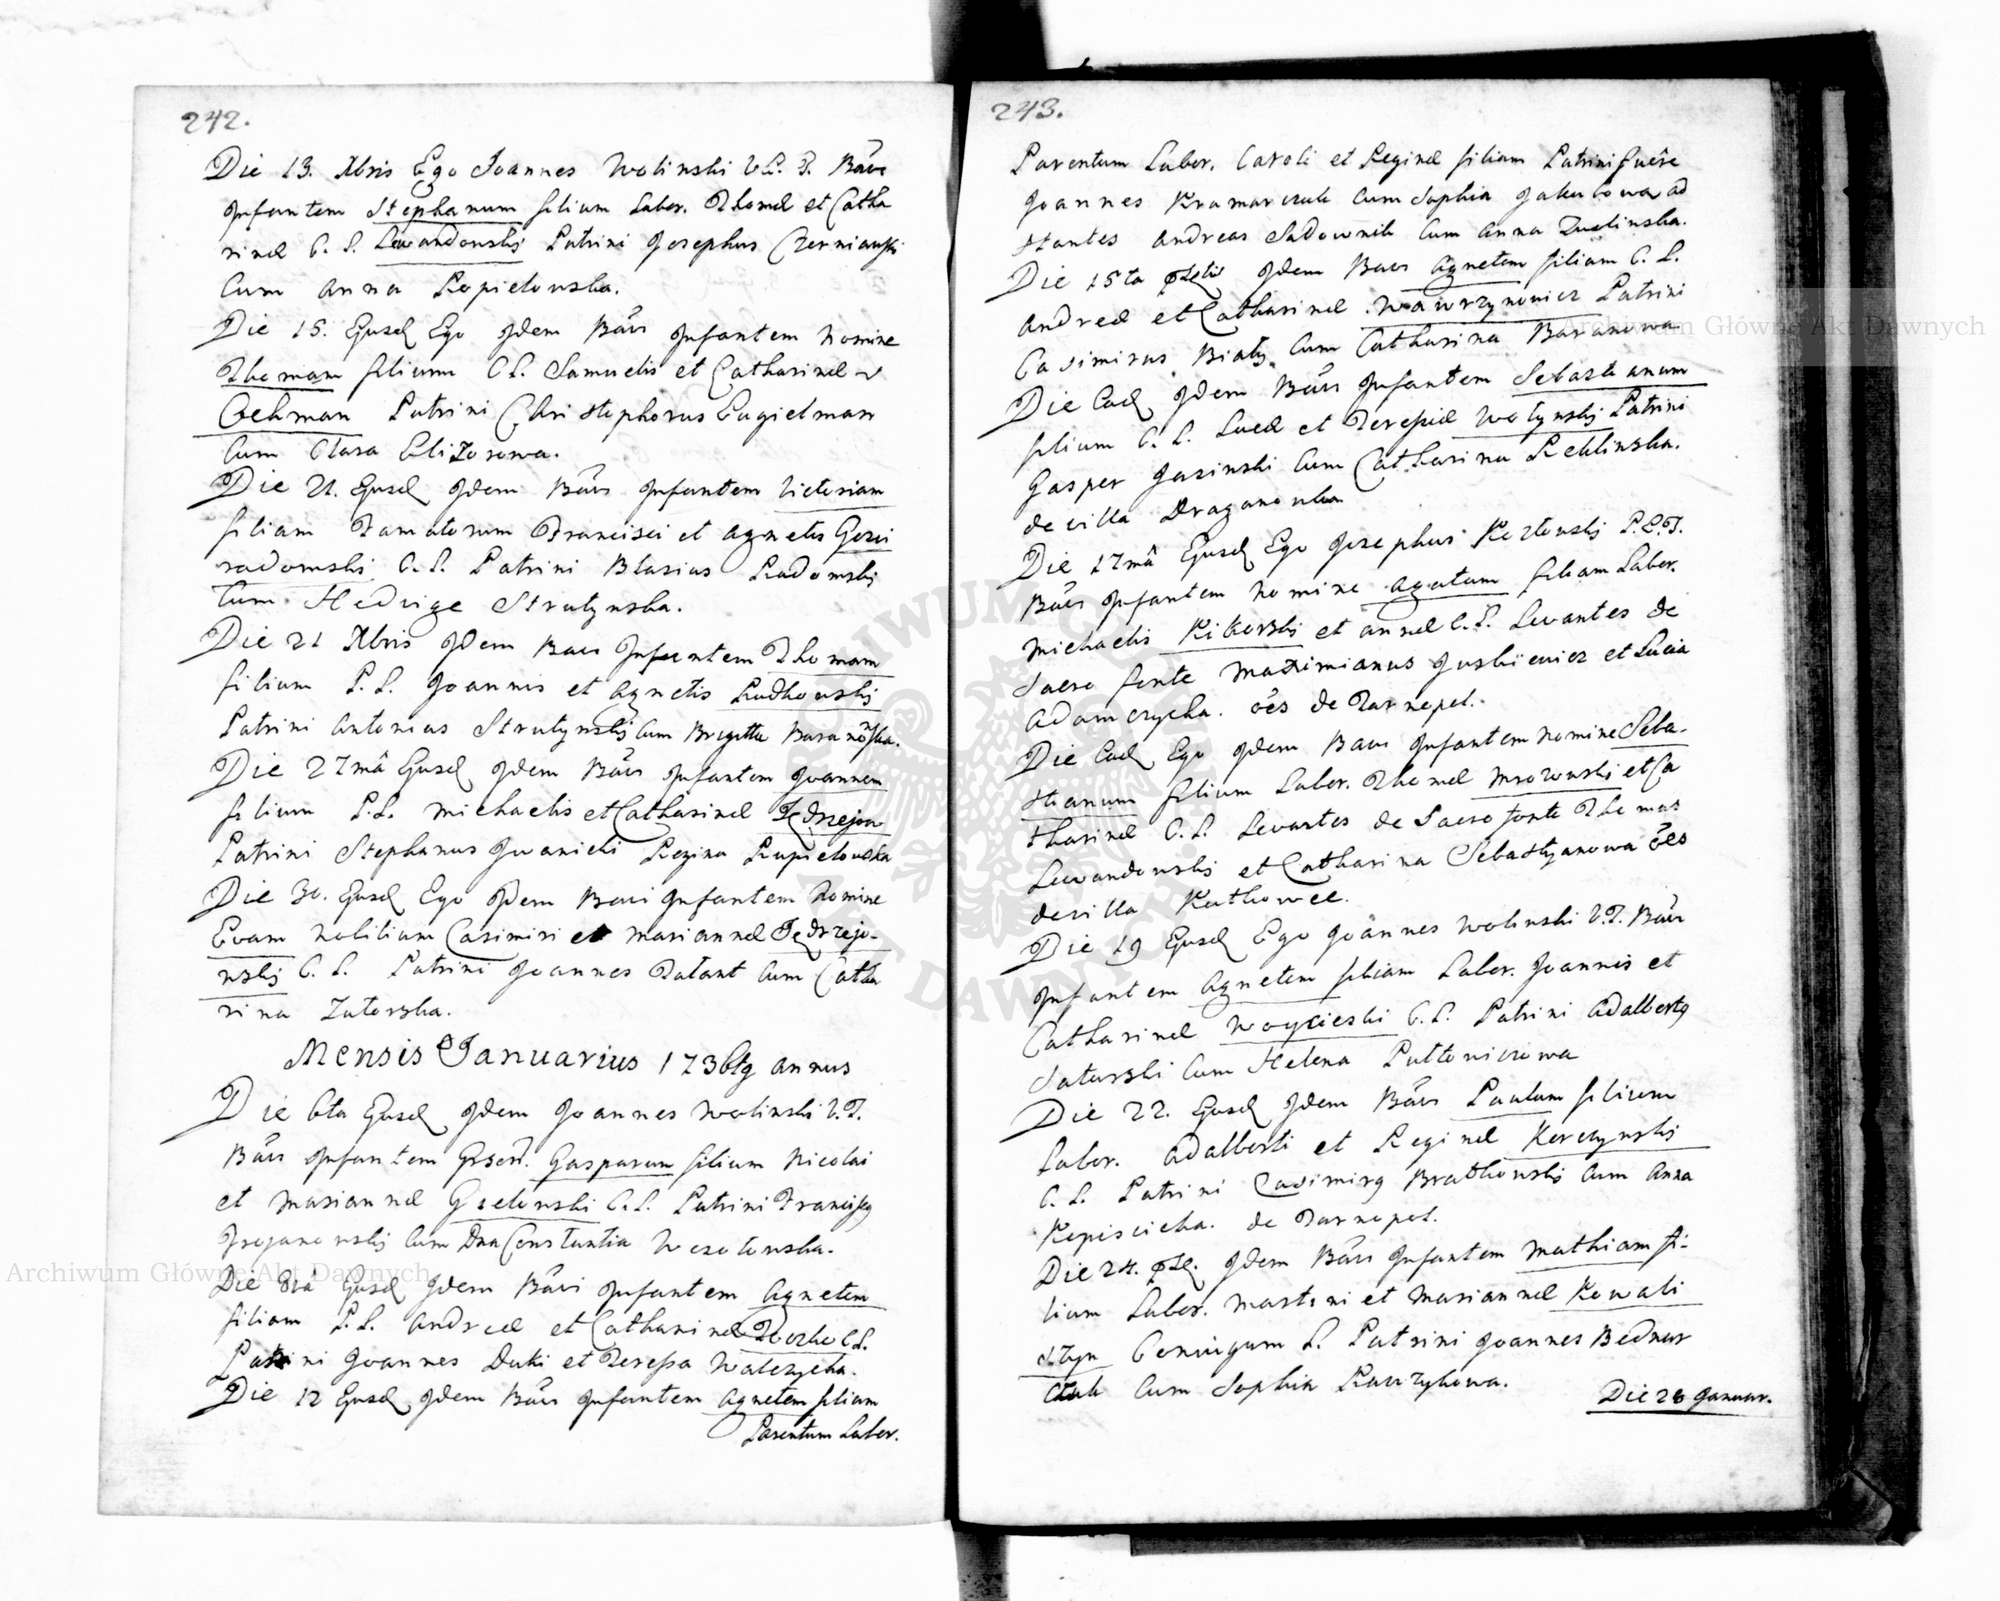 242.
Die 13. Xbris Ego Joannes Wolinski V. P. T. Baūi
Infantem Stephanum filium Labor. Thomæ et Catha
rinæ C. L. Lewandowskij Patrini Josephus Czerniauski
Cum Anna Kopietowska.
Die 15. Ejusd Ego Idem Baūi Infantem Nomine
Thomam filium CL. Samuelis et Catharinæ
Cehman Patrini Christophorus Eugielman
Cum Clara Elizorowa.
Die 21. Ejusd Idem Baūi Infantem Victoriam
filiam Famatorum Francisci et Agnetis
radomski C. L. Patrini Blasius Radomskij
Cum Hedvige Strutynska.
Die 21 Xbris Idem Baūi Infantem Thomam
filium P. L. Joannis et Agnetis Rudkowskij
Patrini Antonius Strutynskij Cum Brigitta Baranowska.
Die 27mâ Ejusd Idem Baūi Infantem Joannem
filium L.L. Michaelis et Catharinæ Jędrzejow
Patrini Stephanus Iwanicki Regina Kupietowska
Die 30. Ejusd Ego Idem Baūi Infantem Nomine
Evam Nobilium Casimiri et Mariannæ Jędrzejo-
wskij C. L. Patrini Joannes Tatant Cum Catha
rina Zatorska.
Mensis Januarius 1736tg annus
Die 6ta Ejusd Idem Joannes Wolinski V. P.
Baūi Infantem Gasparum filium Nicolai
et Mariannæ Grelenski C. L. Patrini Francisсg
Trojanowskij Cum Dna Constantia Wesolowska.
Die 8vâ Ejusd Idem Baūi Infantem Agnetem
filiam L.L. Andreæ et Catharinæ CL.
Patrini Joannes Duki et Teressa Walczycka.
Die 12 Ejusd Idem Baūi Infantem Agnetem filiam
Parentum Labor.
243.
Parentum Labor. Caroli et Reginæ filiam Patrini fuêre
Joannes Kramarczuk Cum Sophia Jakubowa ad
stantes Andreas Sadownik Cum Anna Zuelinska.
Die 15ta Idem Baūi Agnetem filiam C. L.
Andreæ et Catharinæ Wawrzynowicz Patrini
Casimirus Biały Cum Catharina Baranowa
Die Ead Idem Baūi Infantem Sebastianum
filium C. L. Lucæ et Teressiæ Wolynskij Patrini
Gasper Jasinski Cum Catharina Reklinska.
de villa Draganowka
Die 17mâ Ejusd Ego Josephus Kozlowskij P.E.T.
Baūi Infantem Nomine Agatam filiam Labor.
Michaelis Kikerski et Annæ C. L. Levantes de
Sacro fonte Maximianus Juskiewicz et Lucia
Adamczycha. oēs de Tarnopol.
Die Ead Ego Idem Baūi Infantem Nomine Seba-
stianum filium Labor. Thomæ Mrozowski et Ca
tharinæ C. L. Levantes de Sacro fonte Thomas
Lewandowskij et Catharina Sebastyanowa oēs
de villa Kutkowce.
Die 19 Ejusd Ego Joannes Wolinski V.P. Baūi
Infantem Agnetem filiam Labor. Joannis et
Catharinæ Woycieski C. L. Patrini Adalbertg
Saturski Cum Helena Puttowiczowa
Die 22. Ejusd Idem Baūi Paulum filium
Labor. Adalberti et Reginæ Korczynskij
C. L. Patrini Casimirg Bratkowskij Cum Anna
Kopiscicha. de Tarnopol.
Die 24. Idem Baūi Infantem Mathiam fi-
lium Labor. Martini et Mariannæ Kowali
szyn Conjugum L. Patrini Joannes Bednar
czuk Cum Sophia Krawzykowa.
Die 28 Januar.
Archiwum Główne Akt Dawnych
Archiwum Główne Akt Dawnych
ARCHIWUM GŁÓWNE AKT DAWNYCH